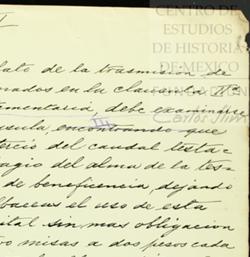 I
CENTRO DE
ESTUDIOS
DE HISTORIA
DE MEXICO
FUNDACIÓN
Carlos Slim
lato de la trasmision de
nados en la clausula Xª
amentaria, debe examinar
III
usula, encontrando que
ercio del caudal testa-
agio del alma de la tes-
de beneficencia, dejando
lbaceas el uso de esta
ital sin mas obligacion
vo misas a dos pesos cada